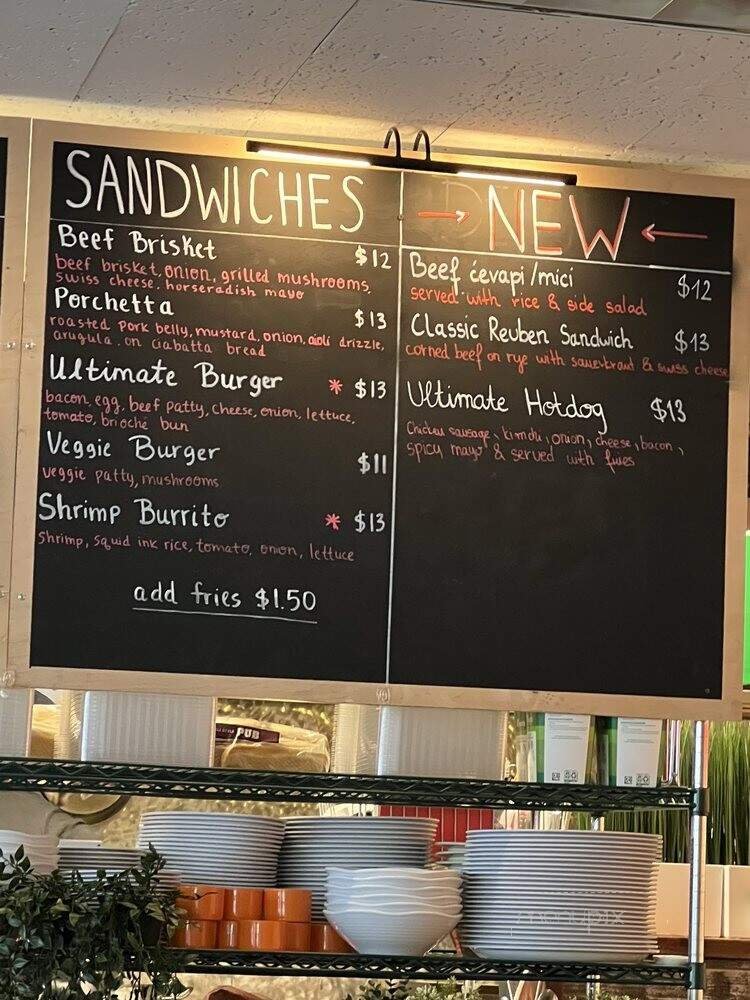 SANDWICHES
Beef Brisket $12
beef brisket, onion, grilled mushrooms,
swiss cheese, horseradish mayo
Porchetta $13
roasted pork belly, mustard, onion, aioli drizzle,
arugula. on ciabatta bread
Ultimate Burger * $13
bacon, egg, beef patty, cheese, onion, lettuce,
tomato, brioche bun
Veggie Burger $11
veggie patty, mushrooms
Shrimp Burrito * $13
Shrimp, squid ink rice, tomato, onion, lettuce
add fries $1.50
→ NEW ←
Beef ćevapi/mici $12
served with rice & side salad
Classic Reuben Sandwich $13
corned beef on rye with sauerkraut & swiss cheese
Ultimate Hotdog $13
Chicken sausage, kimchi, onion, cheese, bacon,
spicy mayo & served with fries
PUB